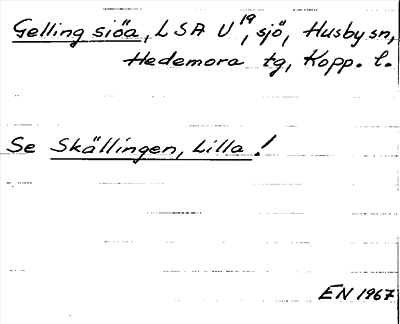 Gelling siöa, LSA U 19, sjö, Husby sn,
Hedemora tg, Kopp. l.
Se Skällingen, Lilla!
EN 1967